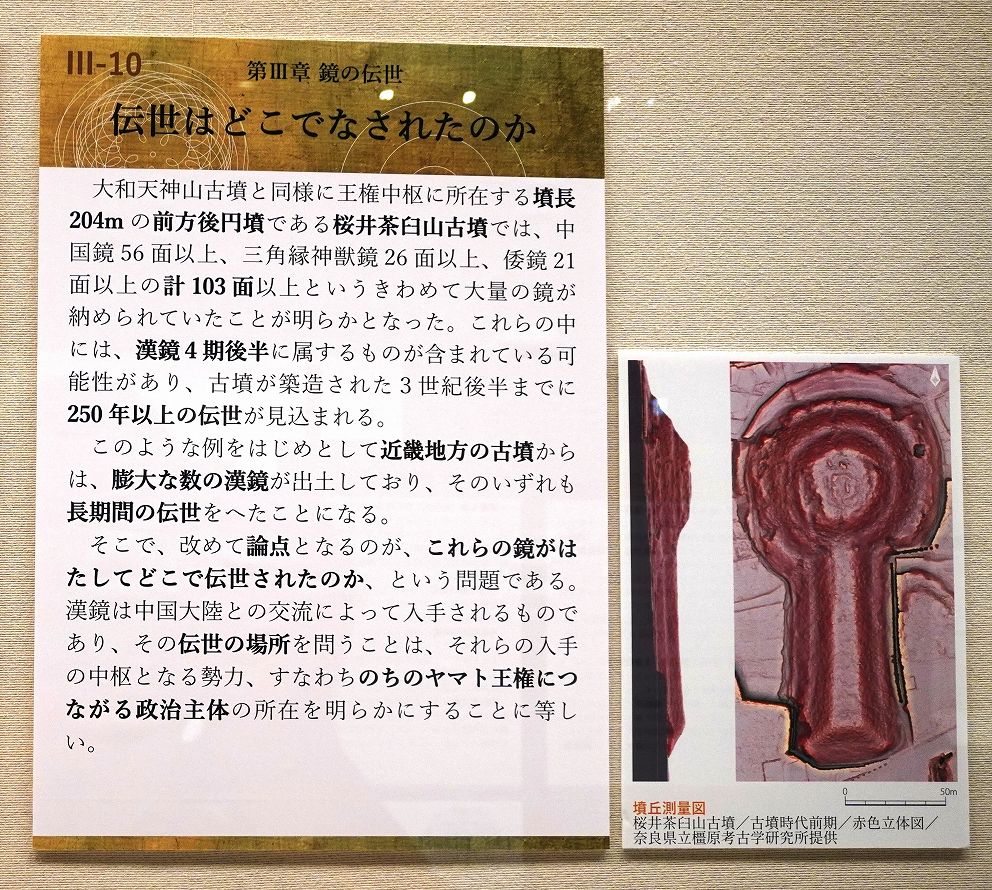 III-10
第Ⅲ章 鏡の伝世
伝世はどこでなされたのか
大和天神山古墳と同様に王権中枢に所在する墳長
204m の前方後円墳である桜井茶臼山古墳では、中
国鏡 56 面以上、三角縁神獣鏡 26 面以上、倭鏡 21
面以上の計 103 面以上というきわめて大量の鏡が
納められていたことが明らかとなった。これらの中
には、漢鏡 4 期後半に属するものが含まれている可
能性があり、古墳が築造された 3 世紀後半までに
250 年以上の伝世が見込まれる。
このような例をはじめとして近畿地方の古墳から
は、膨大な数の漢鏡が出土しており、そのいずれも
長期間の伝世をへたことになる。
そこで、改めて論点となるのが、これらの鏡がは
たしてどこで伝世されたのか、という問題である。
漢鏡は中国大陸との交流によって入手されるもので
あり、その伝世の場所を問うことは、それらの入手
の中枢となる勢力、すなわちのちのヤマト王権につ
ながる政治主体の所在を明らかにすることに等し
い。
0 50m
墳丘測量図
桜井茶臼山古墳／古墳時代前期／赤色立体図／
奈良県立橿原考古学研究所提供